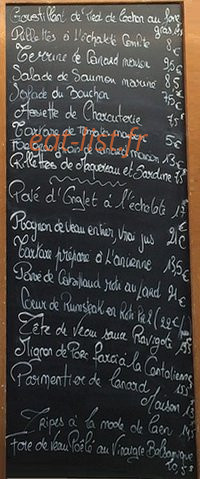 Croustillant de Pied de Cochon au foie gras
Rillettes à l'échalote Confite 8€
Terrine de Canard maison 9,5€
Salade de Saumon mariné 8,5
Salade du Bouchon 7,5€
Assiette de Charcuterie 7,5
Tartare de Tomates 5€
eat-list.fr
maison 13€
Rillettes de Maquereau et Sardine 7,5
Pavé d'Onglet à l'échalote 17€
Rognon de veau entier, vrai jus 21€
Tartare préparé à l'Ancienne 13,5€
Dos de Cabillaud rôti au Lard 21€
Coeur de Rumsteak (22€)
Tête de Veau sauce Ravigote
Mignon de Porc farci à la Cantalienne
Parmentier de Canard Maison 13
Tripes à la mode de Caen 14,5
Foie de veau Poêlé au Vinaigre Balsamique